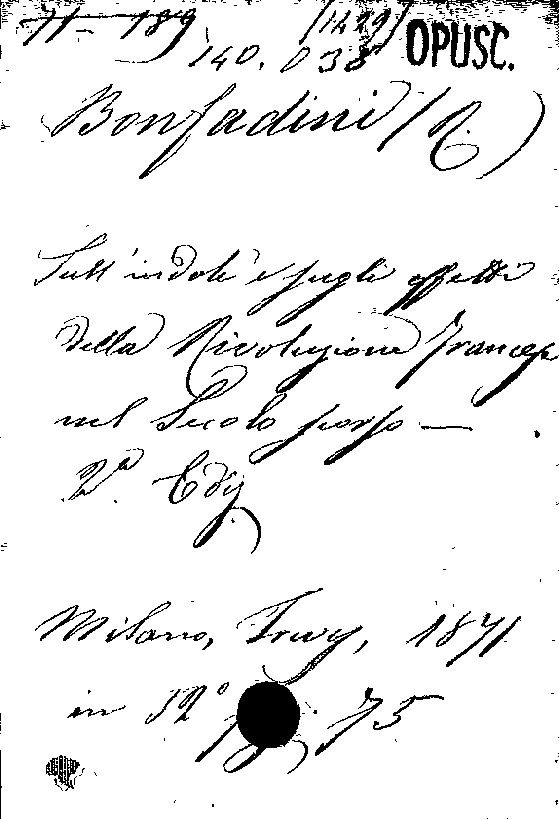 71 - 189 (1429) OPUSC.
140. 038
Bonfadini (R.)
Sull'indole e sugli effetti
della Rivoluzione Francese
nel Secolo scorso —
2ª Ediz
Milano, Trevs, 1871
in 32° pg. 75